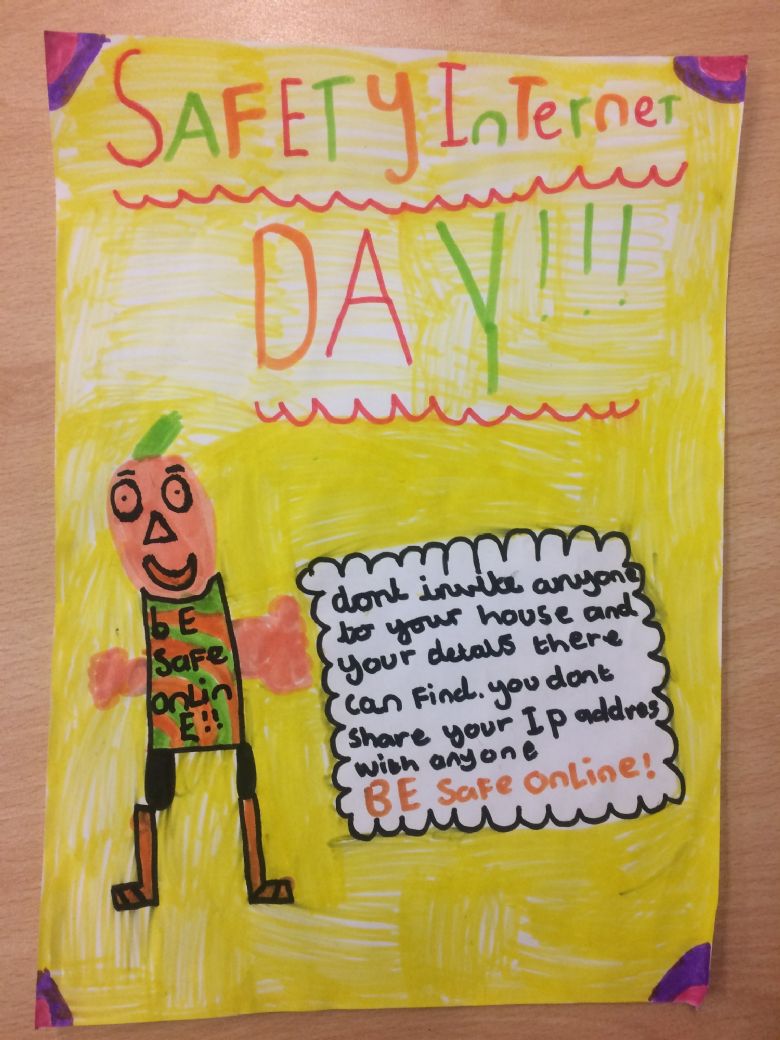 SAFETY InTerneT
DAY!!!
bE
Safe
onLin
E!!
dont invite anyone
to your house and
your detals there
can Find. you dont
share your Ip addres
with anyone
BE Safe onLine!